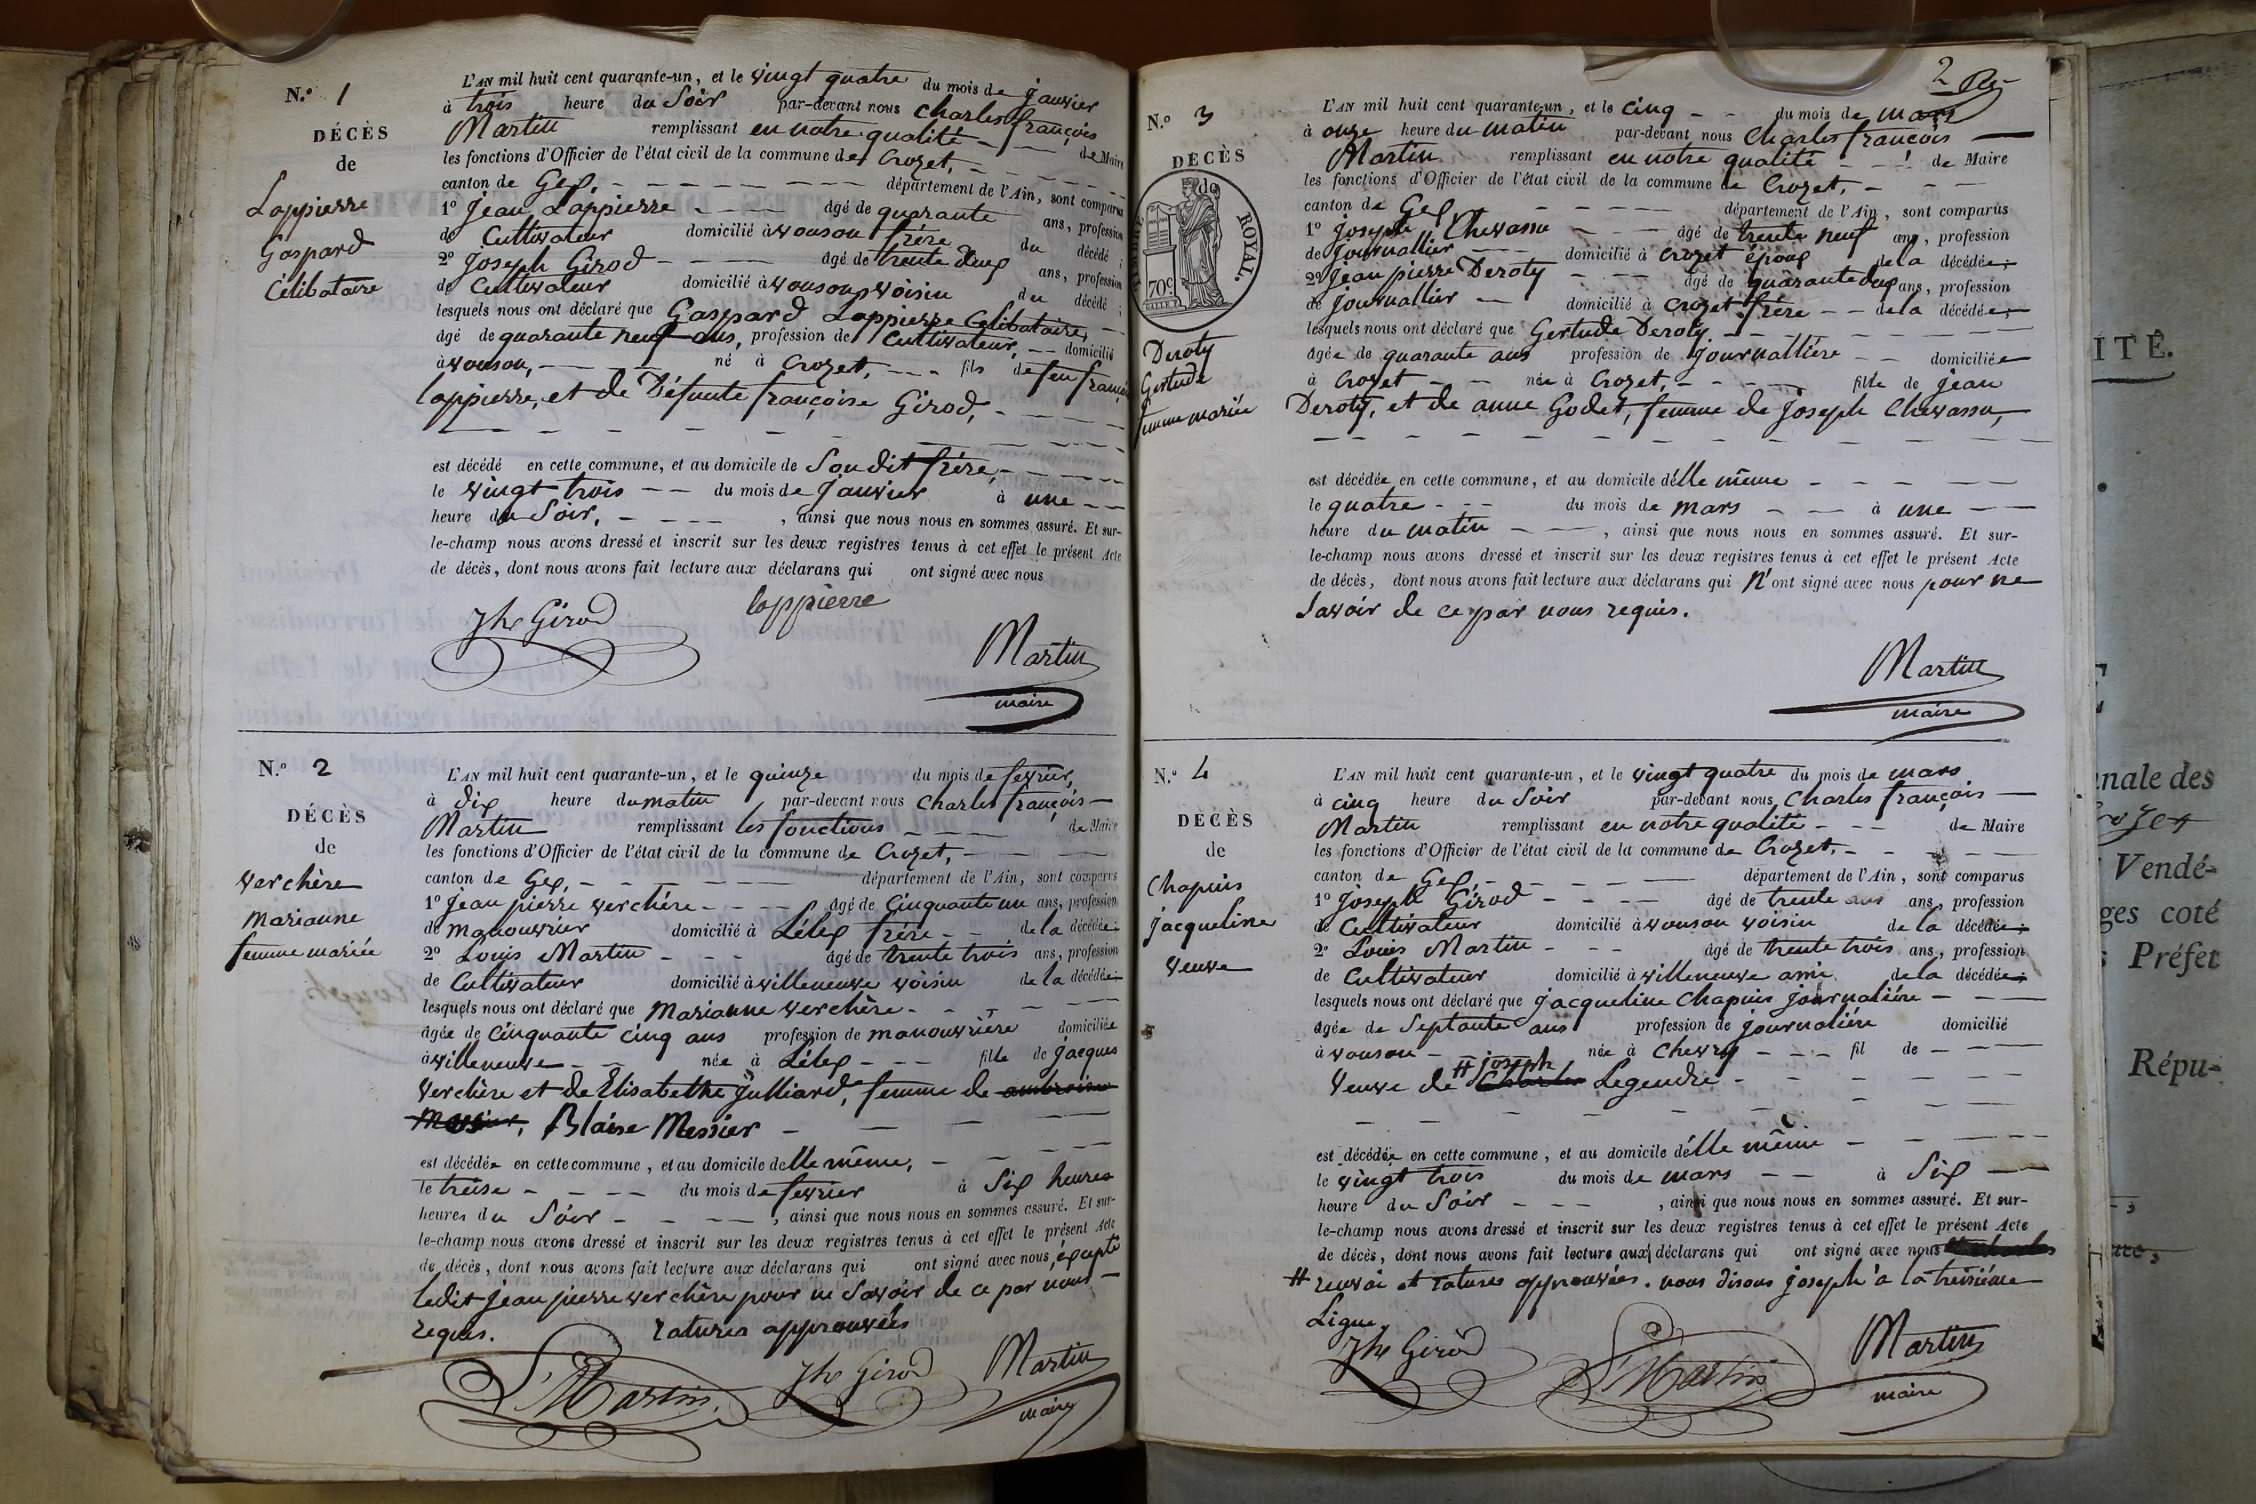 N.º 1
DÉCÈS
de
Lappierre
Gaspard
Célibataire
L'AN mil huit cent quarante-un, et le vingt quatre du mois de janvier
à trois heure du Soir par-devant nous Charles françois
Martin remplissant en notre qualité - de Maire
les fonctions d'Officier de l'état civil de la commune de Crozet,
canton de Gex, département de l'Ain, sont comparus
1º Jean Lappierre âgé de quarante ans, profession
de Cultivateur domicilié à vouson frère du décédé;
2º Joseph Girod âgé de trente deux ans, profession
de Cultivateur domicilié à vouson voisin du décédé;
lesquels nous ont déclaré que Gaspard Lappierre Célibataire,
âgé de quarante neuf ans, profession de Cultivateur, domicilié
à vouson, né à Crozet, fils de feu françois
lappierre, et de Défunte françoise Girod,
est décédé en cette commune, et au domicile de Son dit frère,
le vingt trois du mois de janvier à une
heure du Soir, , ainsi que nous nous en sommes assuré. Et sur-
le-champ nous avons dressé et inscrit sur les deux registres tenus à cet effet le présent Acte
de décès, dont nous avons fait lecture aux déclarans qui ont signé avec nous
Jh Girod lappierre
Martin
maire
N.º 2
DÉCÈS
de
verchère
marianne
femme mariée
L'AN mil huit cent quarante-un, et le quinze du mois de fevrier,
à dix heure du matin par-devant nous Charles françois
Martin remplissant les fonctions de Maire
les fonctions d'Officier de l'état civil de la commune de Crozet,
canton de Gex, département de l'Ain, sont comparus
1º Jean pierre verchère âgé de Cinquante un ans, profession
de manouvrier domicilié à Lélex frère de la décédée;
2º Louis Martin âgé de trente trois ans, profession
de Cultivateur domicilié à villeneuve voisin de la décédée
lesquels nous ont déclaré que Marianne verchère
âgée de Cinquante cinq ans profession de manouvrière domiciliée
à villeneuve née à Lélex fille de jacques
verchère et de Elisabethe Julliard, femme de ambroise
Messier, Blaise Messier
est décédée en cette commune, et au domicile delle même,
le treise du mois de fevrier à Six heures
heures du Sóir , ainsi que nous nous en sommes assuré. Et sur-
le-champ nous avons dressé et inscrit sur les deux registres tenus à cet effet le présent Acte
de décès, dont nous avons fait lecture aux déclarans qui ont signé avec nous, éxcepté
ledit jean pierre verchère pour ne Savoir de ce par nous
requis. ratures approuvées
L Martin Jh Girod Martin
maire
2
N.º 3
DÉCÈS
de
TIMBRE ROYAL.
70c
Deroty
Gertude
femme mariée
L'AN mil huit cent quarante-un, et le cinq du mois de mars
à onze heure du matin par-devant nous Charles françois
Martin remplissant en notre qualité de Maire
les fonctions d'Officier de l'état civil de la commune de Crozet,
canton de Gex, département de l'Ain, sont comparus
1º joseph Chevassu âgé de trente neuf ans, profession
de journallier domicilié à Crozet époux de la décédée;
2º Jean pierre Deroty âgé de quarante deux ans, profession
de journallier domicilié à Crozet frère de la décédée;
lesquels nous ont déclaré que Gertude Deroty
âgée de quarante ans profession de journallière domiciliée
à Crozet née à Crozet, fille de jean
Deroty, et de anne Godet, femme de joseph Chevassu,
est décédée en cette commune, et au domicile délle même
le quatre du mois de mars à une
heure du matin , ainsi que nous nous en sommes assuré. Et sur-
le-champ nous avons dressé et inscrit sur les deux registres tenus à cet effet le présent Acte
de décès, dont nous avons fait lecture aux déclarans qui N'ont signé avec nous pour ne
Savoir de ce par nous requis.
Martin
maire
N.º 4
DÉCÈS
de
Chapuis
jacqueline
veuve
L'AN mil huit cent quarante-un, et le vingt quatre du mois de mars
à cinq heure du Soir par-devant nous Charles françois
Martin remplissant en notre qualité de Maire
les fonctions d'Officier de l'état civil de la commune de Crozet,
canton de Gex, département de l'Ain, sont comparus
1º joseph Girod âgé de trente ans ans, profession
de Cultivateur domicilié à vouson voisin de la décédée;
2º Louis Martin âgé de trente trois ans, profession
de Cultivateur domicilié à villeneuve ami de la décédée;
lesquels nous ont déclaré que jacqueline Chapuis journalière
âgée de Septante ans profession de journalière domicilié
à vouson née à Chevry fil de
# joseph
Veuve de Charles Legendre
est décédée en cette commune, et au domicile délle même
le vingt trois du mois de mars à Six
heure du Soir , ainsi que nous nous en sommes assuré. Et sur-
le-champ nous avons dressé et inscrit sur les deux registres tenus à cet effet le présent Acte
de décès, dont nous avons fait lecture aux déclarans qui ont signé avec nous
# renvoi et ratures approuvées. nous disons joseph à la treisiéme
Ligne.
Jh Girod L Martin Martin
maire
ITÉ.
nale des
Crozet
Vendé-
ges coté
Préfet
Répu-